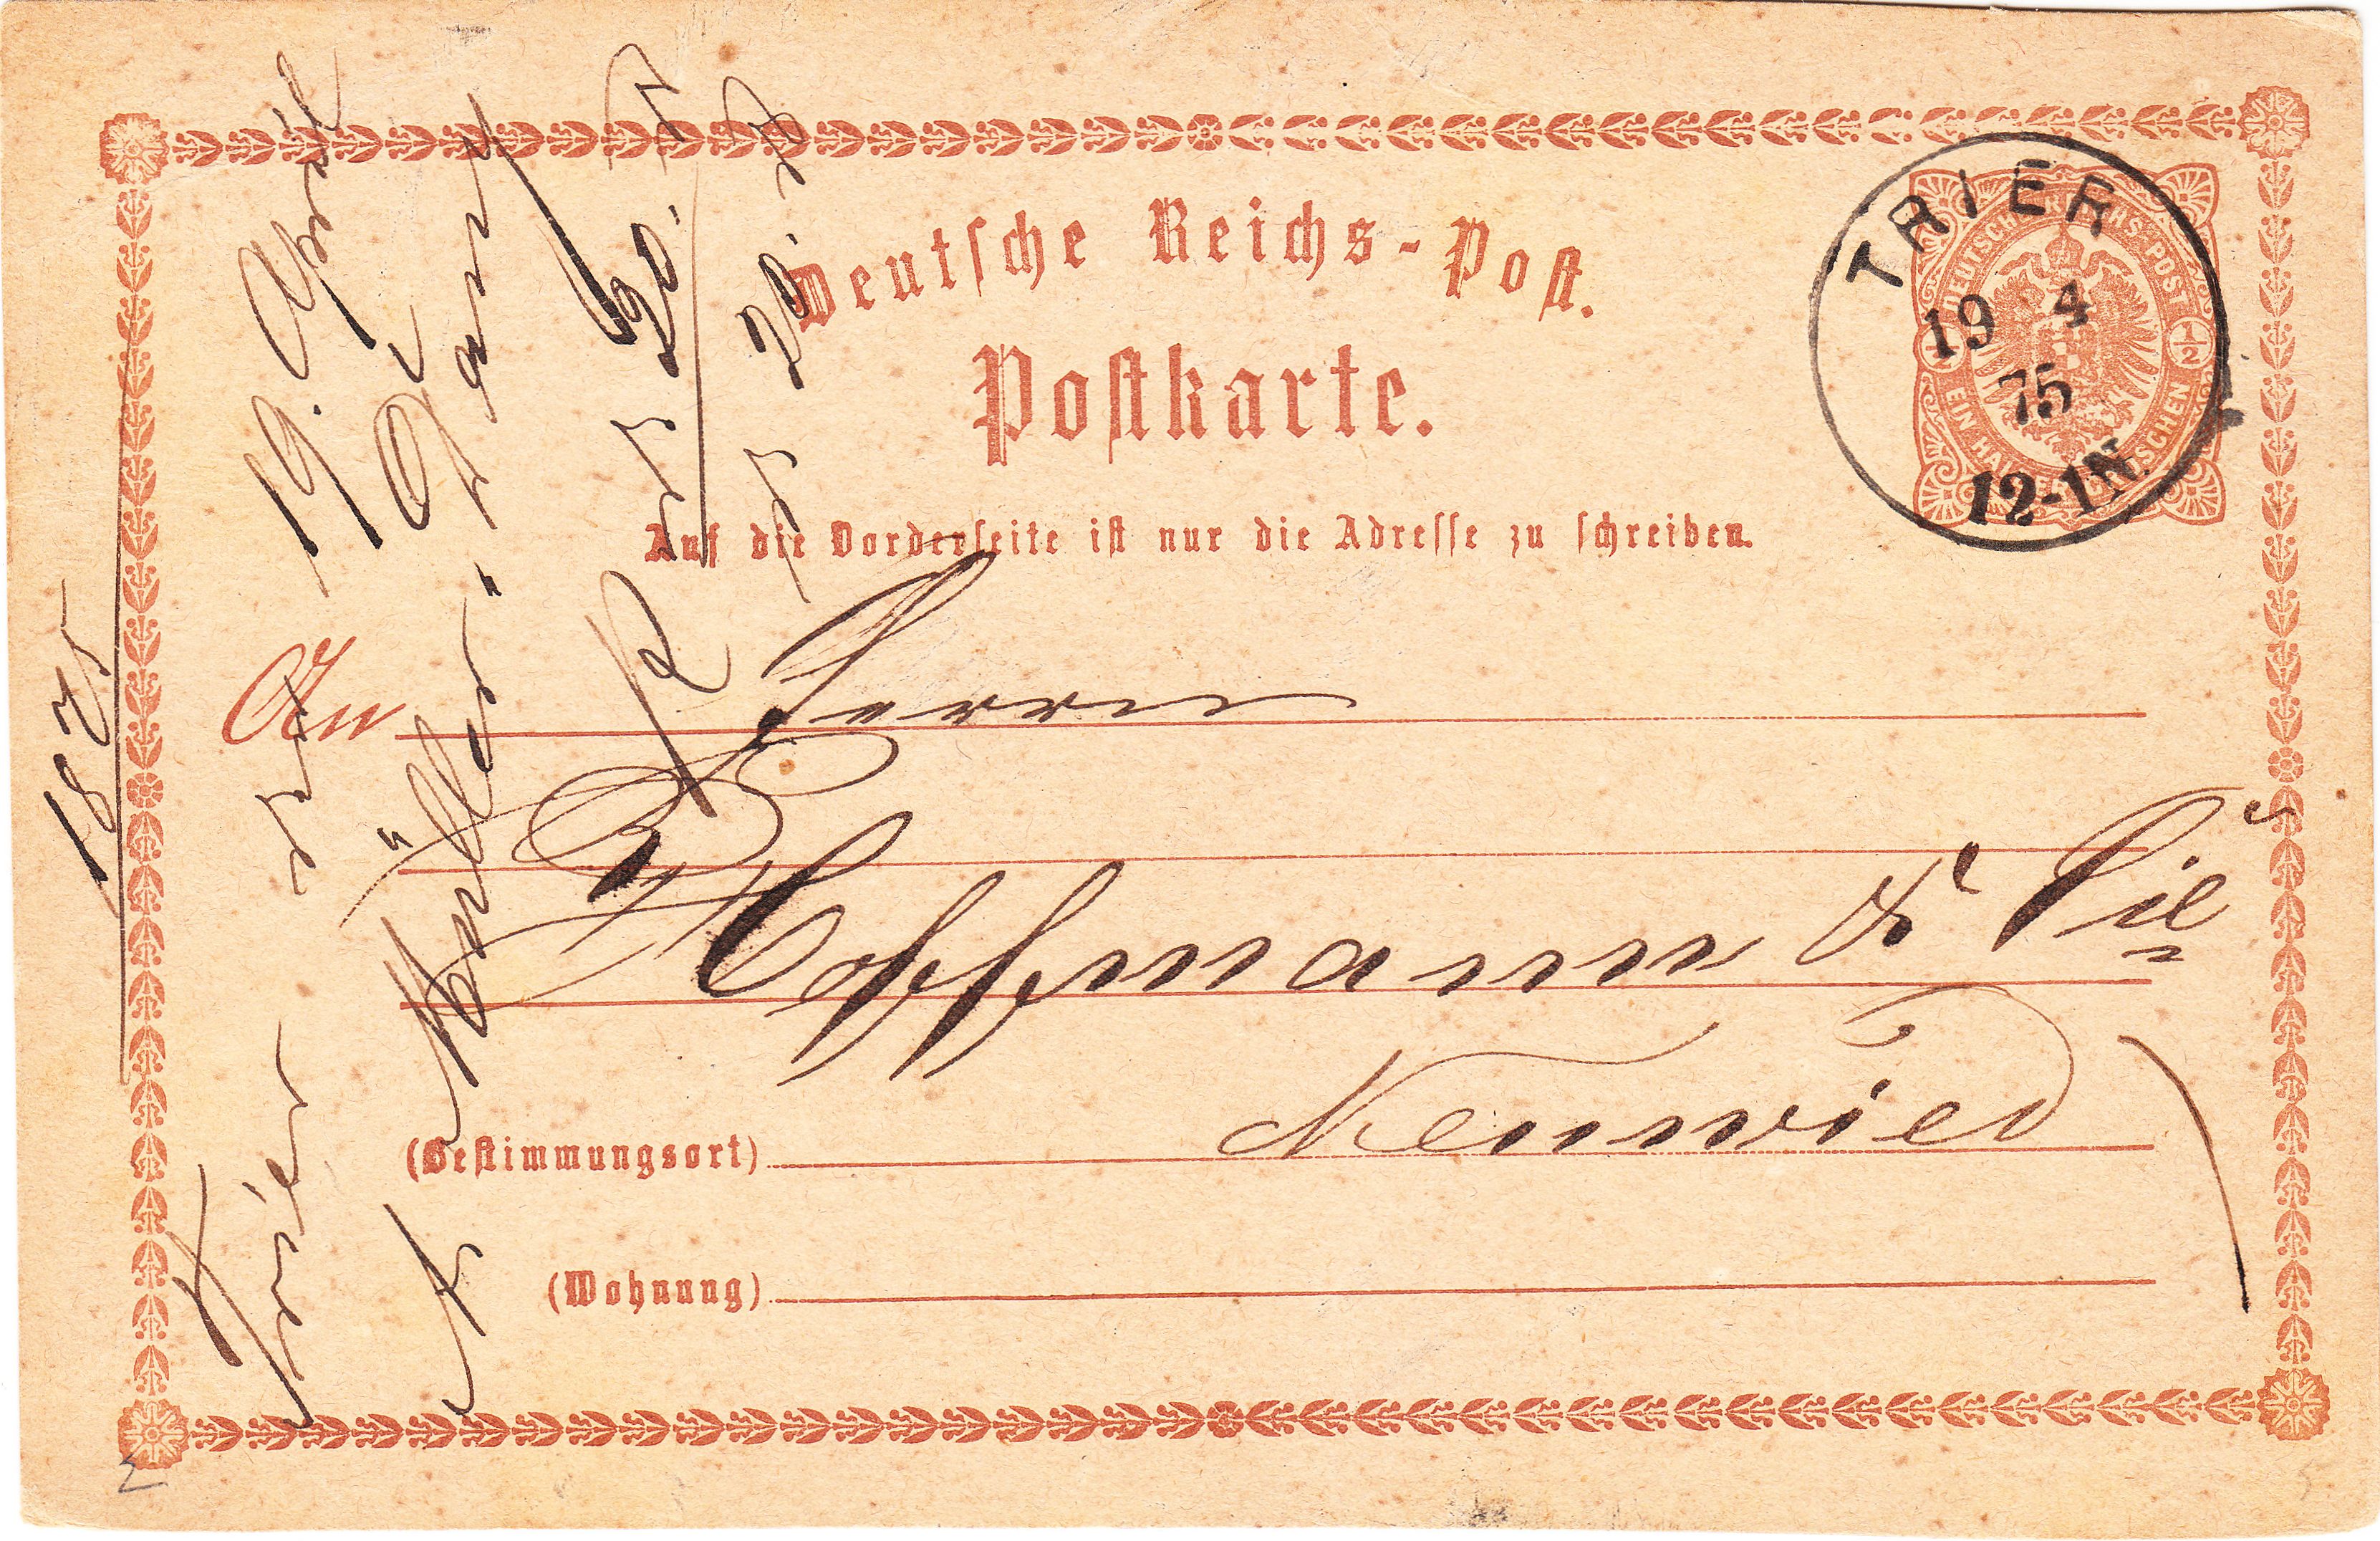 Deutsche Reichs-Post.
Postkarte.
Auf die Vorderseite ist nur die Adresse zu schreiben.
DEUTSCHE REICHS-POST
½ ½
EIN HALBER GROSCHEN
TRIER
19 4
75
12-1N.
An Herrn
Hoffmann & Cie
(Bestimmungsort) Neuwied
(Wohnung)
1875
Trier 19. April
Müller
20.
20.